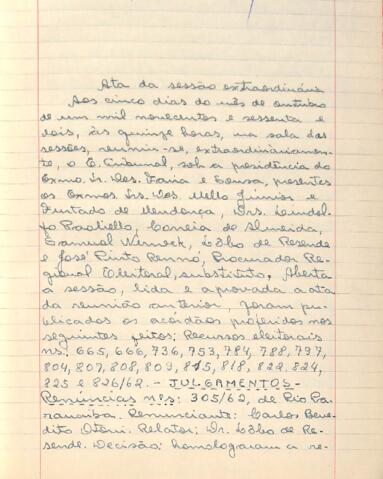 Ata da sessão extraordinária
Aos cinco dias do mês de outubro
de um mil novecentos e sessenta e
dois, às quinze horas, na sala das
sessões, reuniu-se, extraordinariamen-
te, o E. Tribunal, sob a presidência do
Exmo. Sr. Des. Faria e Sousa, presentes
os Exmos. Srs. Des. Mello Júnior e
Furtado de Mendonça, Drs. Lindol-
fo Paoliello, Correia de Almeida,
Samuel Werneck, Lobo de Resende
e José Pinto Rennó, Procurador Re-
gional Eleitoral, substituto. Aberta
a sessão, lida e aprovada a ata
da reunião anterior, foram pu-
blicados os acórdãos proferidos nos
seguintes feitos: Recursos eleitorais
ns.: 665, 666, 736, 753, 784, 788, 797,
804, 807, 808, 809, 815, 818, 822, 824,
825 e 826/62. - JULGAMENTOS -
Renúncias nºs: 305/62, de Rio Pa-
ranaíba. Renunciante: Carlos Bene-
dito Otoni. Relator: Dr. Lobo de Re-
sende. Decisão: homologaram a re-